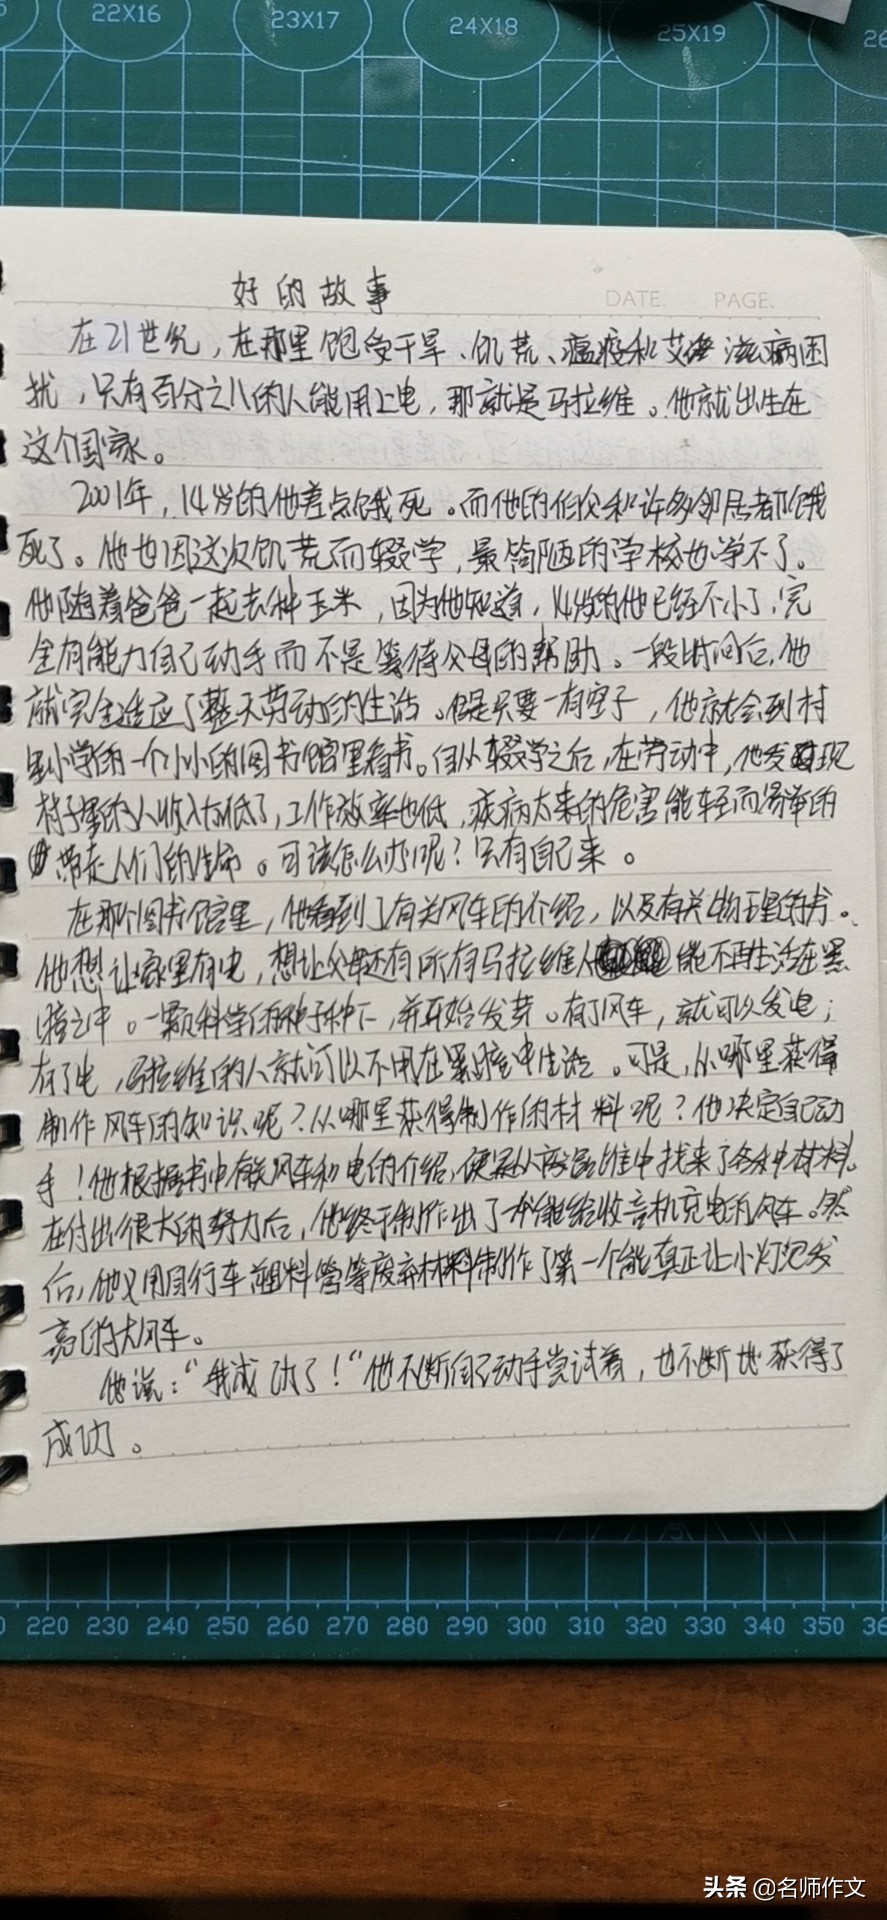 22X16
23X17
24X18
25X19
26
好的故事
DATE. PAGE.
在21世纪，在那里饱受干旱、饥荒、瘟疫和艾滋病困
扰，只有百分之八的人能用上电，那就是马拉维。他就出生在
这个国家。
2001年，14岁的他差点饿死。而他的伯父和许多邻居都饿
死了。他也因这次饥荒而辍学，最简陋的学校也净不了。
他随着爸爸一起去种玉米，因为他知道，14岁的他已经不小了，完
全有能力自己动手而不是等待父母的帮助。一段时间后，他
就完全适应了整天劳动的生活。但是只要一有空子，他就会到村
里小学的一个小小的图书馆里看书。自从辍学之后，在劳动中，他发现
村子里的人收入太低了，工作效率也低，疾病大来的危害能轻而易举的
带走人们的生命。可该怎么办呢？只有自己来。
在那个图书馆里，他看到了有关风车的介绍，以及有关物理的书。
他想让家里有电，想让父母还有所有马拉维人能不再生活在黑
暗之中。一颗科学的种子种下，并开始发芽。有了风车，就可以发电；
有了电，马拉维的人就可以不用在黑暗中生活。可是，从哪里获得
制作风车的知识呢？从哪里获得制作的材料呢？他决定自己动
手！他根据书中有关风车和电的介绍，便从废品堆中找来了各种材料。
在付出很大的努力后，他终于制作出了一个能给收音机充电的风车。然
后，他又用自行车塑料管等废弃材料制作了第一个能真正让小灯泡发
亮的大风车。
他说：“我成功了！”他不断自己动手尝试着，也不断地获得了
成功。
220 230 240 250 260 270 280 290 300 310 320 330 340 350 36
头条 @名师作文